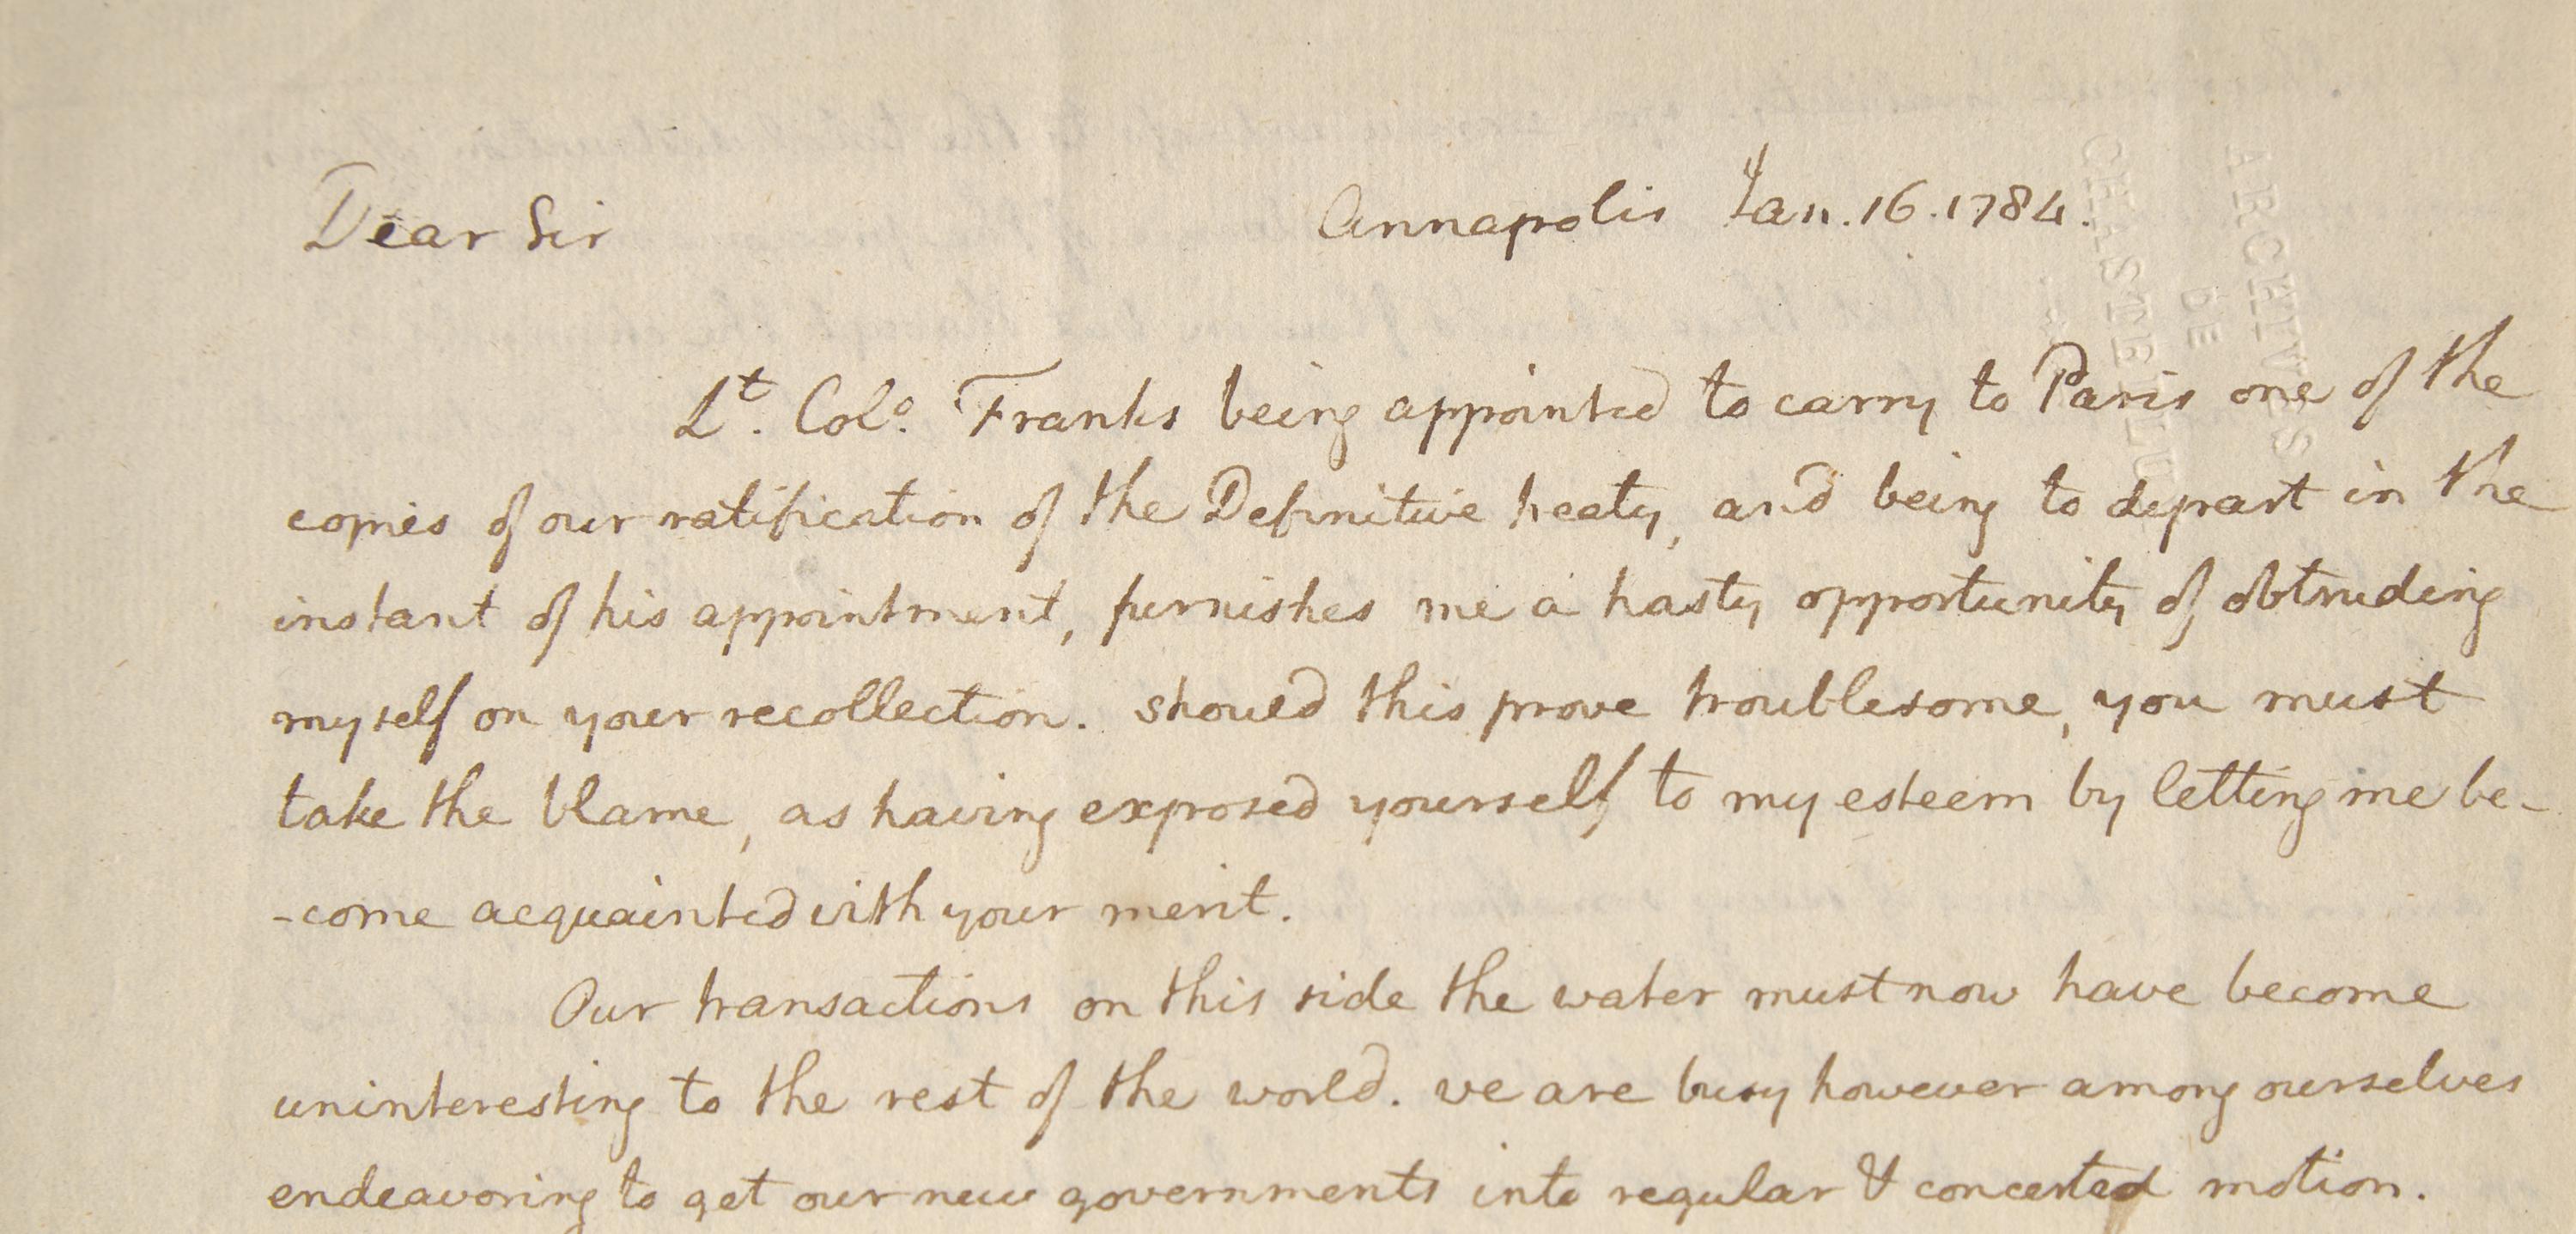 Dear Sir
Annapolis Jan. 16. 1784.
Lt. Colo. Franks being appointed to carry to Paris one of the
copies of our ratification of the Definitive treaty, and being to depart in the
instant of his appointment, furnishes me a hasty opportunity of obtruding
myself on your recollection. should this prove troublesome, you must
take the blame, as having exposed yourself to my esteem by letting me be-
-come acquainted with your merit.
Our transactions on this side the water must now have become
uninteresting to the rest of the world. we are busy however among ourselves
endeavoring to get our new governments into regular & concerted motion.
ARCHIVES
DE
CHASTELLUX